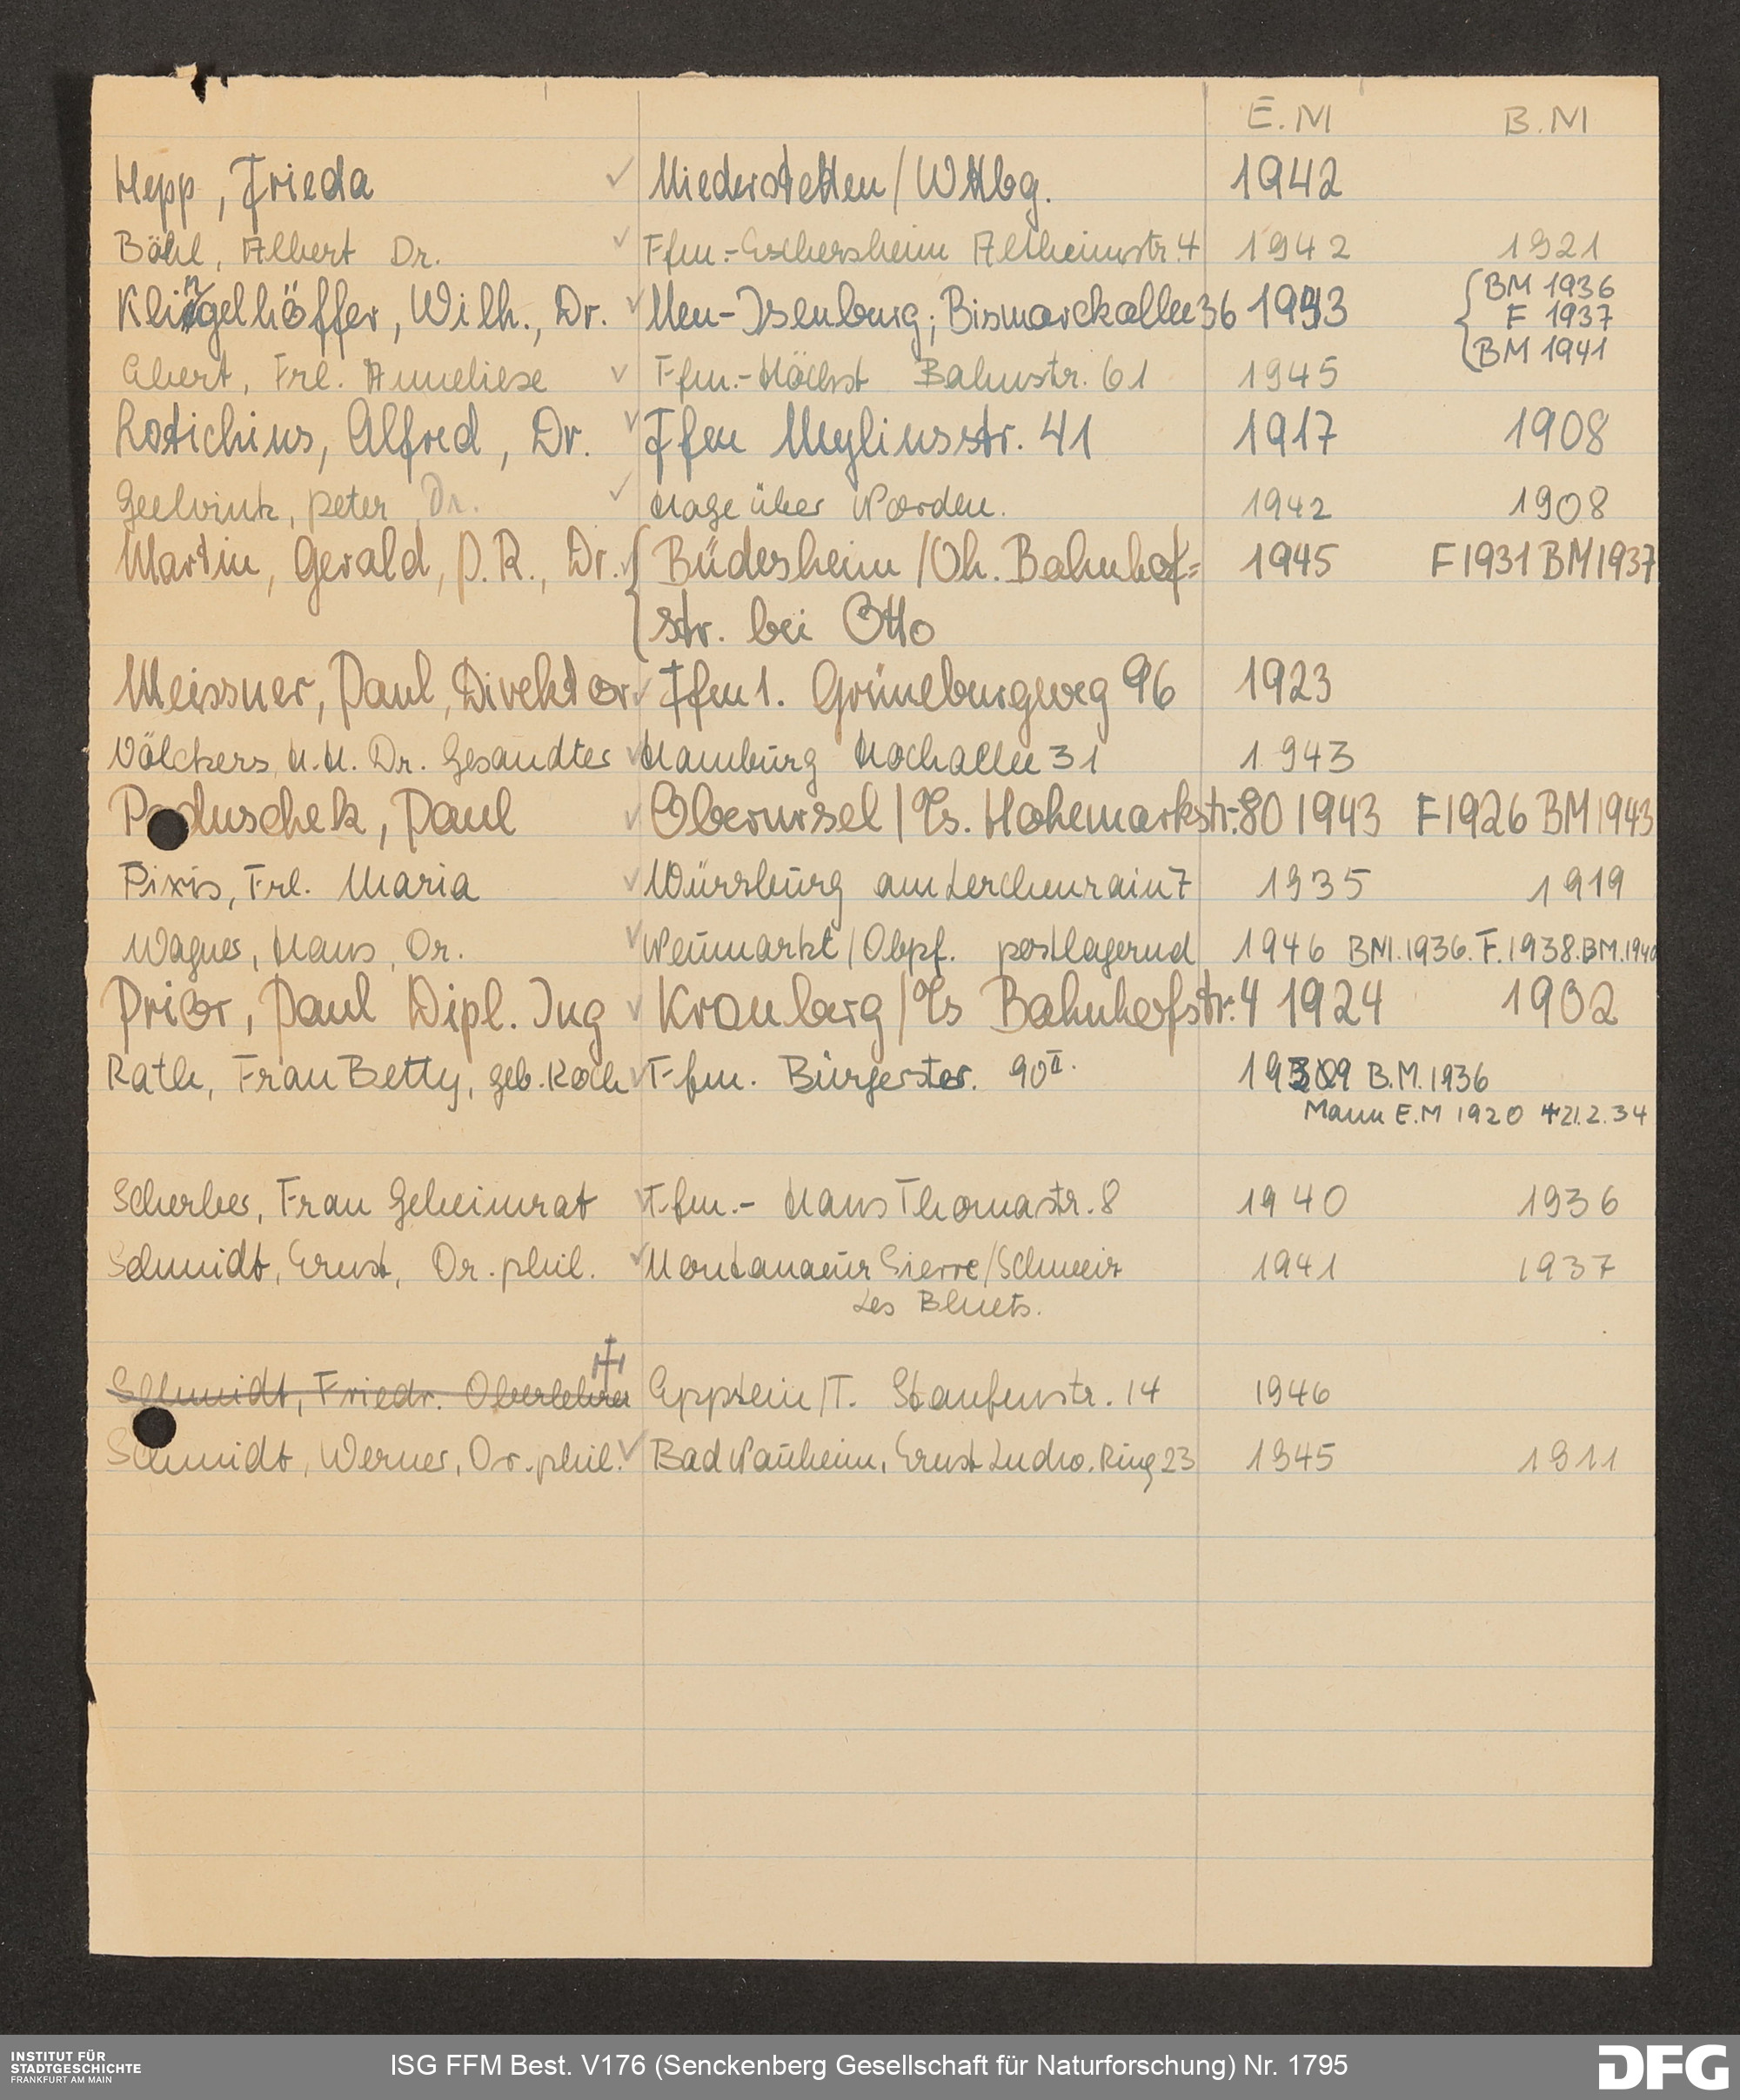 E.M B.M
Hepp, Frieda ✓ Niederstetten/Wttbg. 1942
Böhl, Albert Dr. ✓ Ffm.-Eschersheim Altheimstr. 4 1942 1921
Klingelhöffer, Wilh., Dr. ✓ Neu-Isenburg; Bismarckallee 36 1943 BM 1936
F 1937
BM 1941
Ebert, Frl. Anneliese ✓ Ffm.-Höchst Bahnstr. 61 1945
Lotichius, Alfred, Dr. ✓ Ffm Myliusstr. 41 1917 1908
Geelvink, Peter Dr. ✓ Hage über Norden. 1942 1908
Martin, Gerald, P.R., Dr. ✓ Büdesheim/Oh. Bahnhof= 1945 F1931 BM1937
str. bei Otto
Meissner, Paul, Direktor ✓ Ffm 1. Grüneburgweg 96 1923
Völckers, H.H. Dr. Gesandter ✓ Hamburg Hochallee 31 1943
Poduschek, Paul ✓ Oberursel/Ts. Hohemarkstr. 80 1943 F1926 BM1943
Pixis, Frl. Maria ✓ Würzburg am Lerchenrain 7 1935 1919
Wagner, Hans, Dr. ✓ Neumarkt/Obpf. postlagernd 1946 BM.1936. F.1938. BM.1940
Prior, Paul Dipl. Ing ✓ Kronberg/Ts Bahnhofstr. 4 1924 1902
Rath, Frau Betty, geb. Koch ✓ Ffm. Bürgerstr. 90 II. B.M. 1936
Mann E.M 1920 +21.2.34
Scherbes, Frau Geheimrat ✓ Ffm.- Hans Thomastr. 8 1940 1936
Schmidt, Ernst, Dr. phil. ✓ Montana sur Sierre/Schweiz 1941 1937
Les Bluets.
Schmidt, Friedr. Oberlehrer Eppstein/T. Staufenstr. 14 1946
Schmidt, Werner, Dr. phil. ✓ Bad Nauheim, Ernst Ludw. Ring 23 1945 1911
INSTITUT FÜR
STADTGESCHICHTE
FRANKFURT AM MAIN
ISG FFM Best. V176 (Senckenberg Gesellschaft für Naturforschung) Nr. 1795
DFG